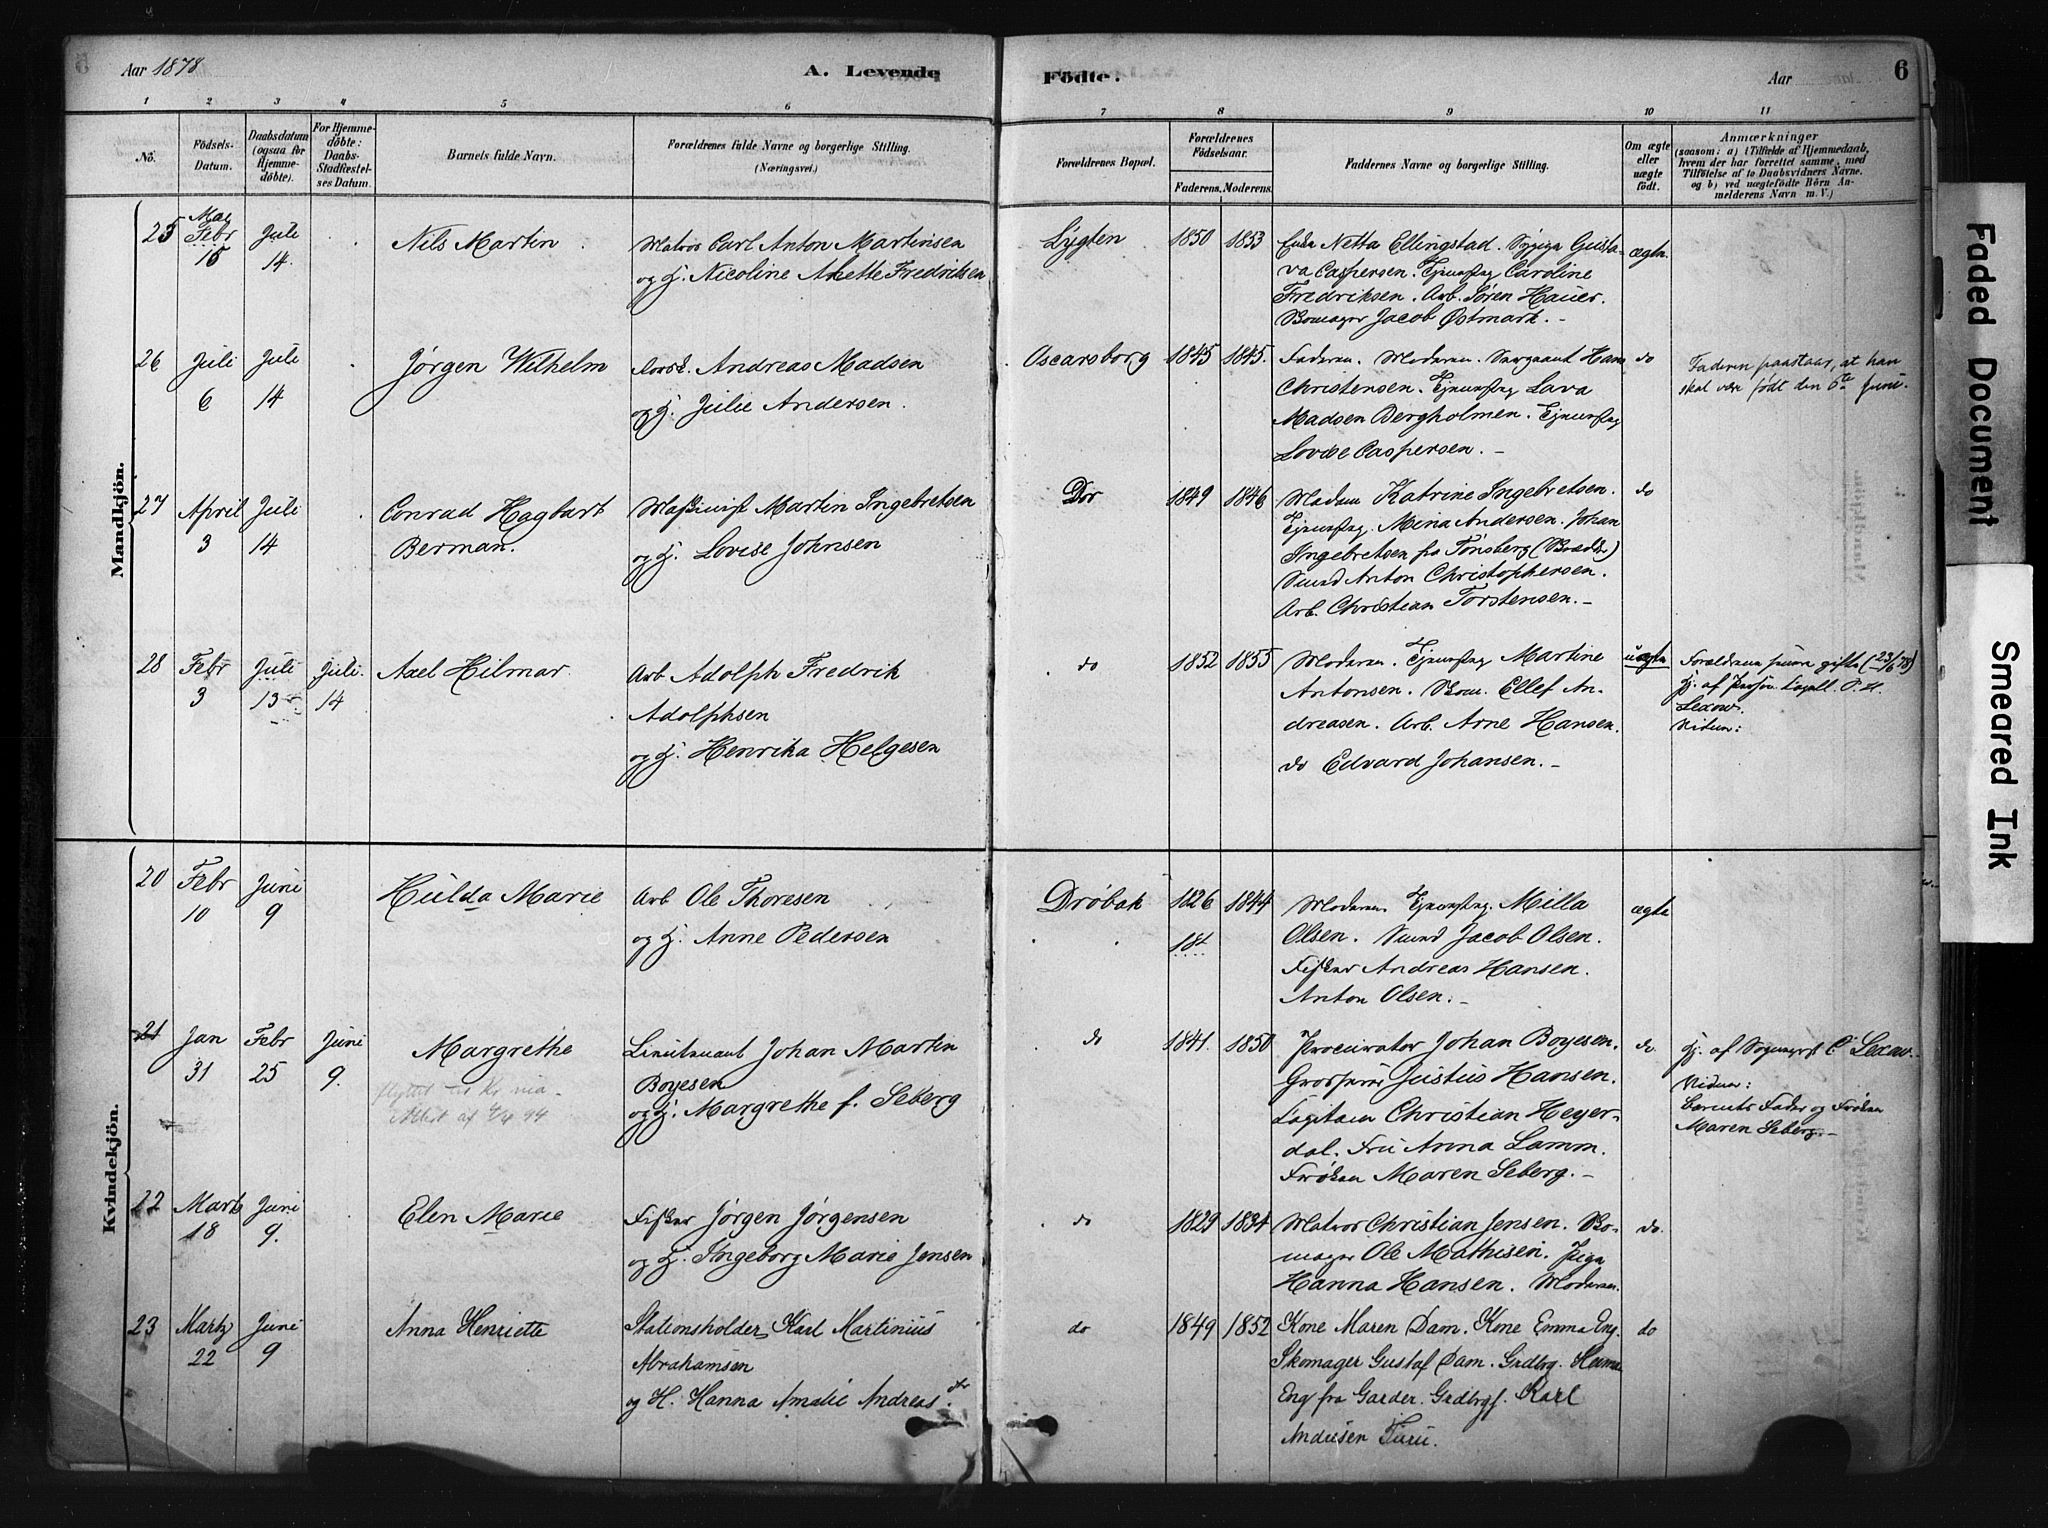 6
Aar 1878
A. Levende
Födte.
Aar
6
1 2 3 4 5 6 7 8 9 10 11
No.
Födsels-
Datum.
Daabsdatum
(ogsaa for
Hjemme-
döbte).
For Hjemme-
döbte:
Daabs-
Stadfæstel-
ses Datum.
Barnets fulde Navn.
Forældrenes fulde Navne og borgerlige Stilling.
(Næringsvei.)
Forældrenes Bopæl.
Forældrenes
Födselsaar.
Faderens. Moderens.
Faddernes Navne og borgerlige Stilling.
Om ægte
eller
uægte
födt.
Anmærkninger
(saasom: a) i Tilfælde af Hjemmedaab,
hvem der har forrettet samme, med
Tilföielse af to Daabsvidners Navne.
og b) ved uægtefödte Börn An-
melderens Navn m. V.)
Mandkjön.
25
Mai
Febr
15
Juli
14.
Nils Martin
Matros Carl Anton Martinsen
og H. Nicoline Anette Fredriksen
Lygten
1850
1853
Netta Ellingstad. Gusta-
va Caspersen. Caroline
Fredriksen. Arb. Søren Hauer.
Jacob Østmark. -
ægte.
26
Juli
6
Juli
14
Jørgen Wilhelm
Andreas Madsen
og H. Julie Andersen.
Oscarsborg
1845
1845.
Faderen. Moderen. Sergeant Hans
Christensen. Lava
Madsen Bergholmen.
Lovise Caspersen. -
do
Faderen paastaar, at han
skal være født den 6te Juni.
27
April
3
Juli
14
Conrad Hagbart
Berman.
Maskinist Martin Ingebretsen
og H. Lovise Johnsen
Do
1849
1846
Madam Katrine Ingebretsen.
Mina Andersen. Johan
Ingebretsen fra Tønsberg
Anton Christophersen.
Arb. Christian Torstensen. -
do
28
Febr
3
Juli
13
Juli.
14
Axel Hilmar
Arb Adolph Fredrik
Adolphsen
og H. Henrika Helgesen
do
1852
1855
Moderen. Martine
Antonsen. Ellef An-
dreasen. Arb. Arne Hansen.
do Edvard Johansen. -
uægte
Forældrene gifte (23/6 78)
Hj. af
Lexow.
Vidner:
Kvindekjön.
20
Febr
10
Juni
9
Hulda Marie
Arb Ole Thoresen
og H. Anne Pedersen
Drøbak
1826
18
1844
Moderen. Milla
Olsen. Jacob Olsen.
Fisker Andreas Hansen.
Anton Olsen. -
ægte
21
Jan
31
Febr
25
Juni
9.
Margrethe
Lieutenant Johan Martin
Boyesen
og H. Margrethe f. Seberg
do
1841.
1850
Procurator Johan Boyesen.
Grosserer Justus Hansen.
Capitain Christian Heyer-
dal. Fru Anna Lamm.
Frøken Maren Seberg. -
do.
Hj. af Sognepr. C Lexow.
Vidner:
Barnets Fader og Frøken
Maren Seberg. -
22
Marts
18
Juni
9.
Elen Marie
Fisker Jørgen Jørgensen
og H. Ingeborg Marie Jensen
do
1829
1834
Matros Christian Jensen. Sko-
mager Ole Mathisen. Pige
Hanna Hansen. Moderen.
do.
23
Marts
22
Juni
9
Anna Henriette
Stationsholder Karl Martinius
Abrahamsen
og H. Hanna Amalie Andreasdtr.
do
1849
1852
Kone Maren Dam. Kone Emma Eng.
Skomager Gustaf Dam. Grdbrg.
Eng fra Garder. Grdbrgs. Karl
Andersen Turu.
do
Faded Document
Smeared Ink